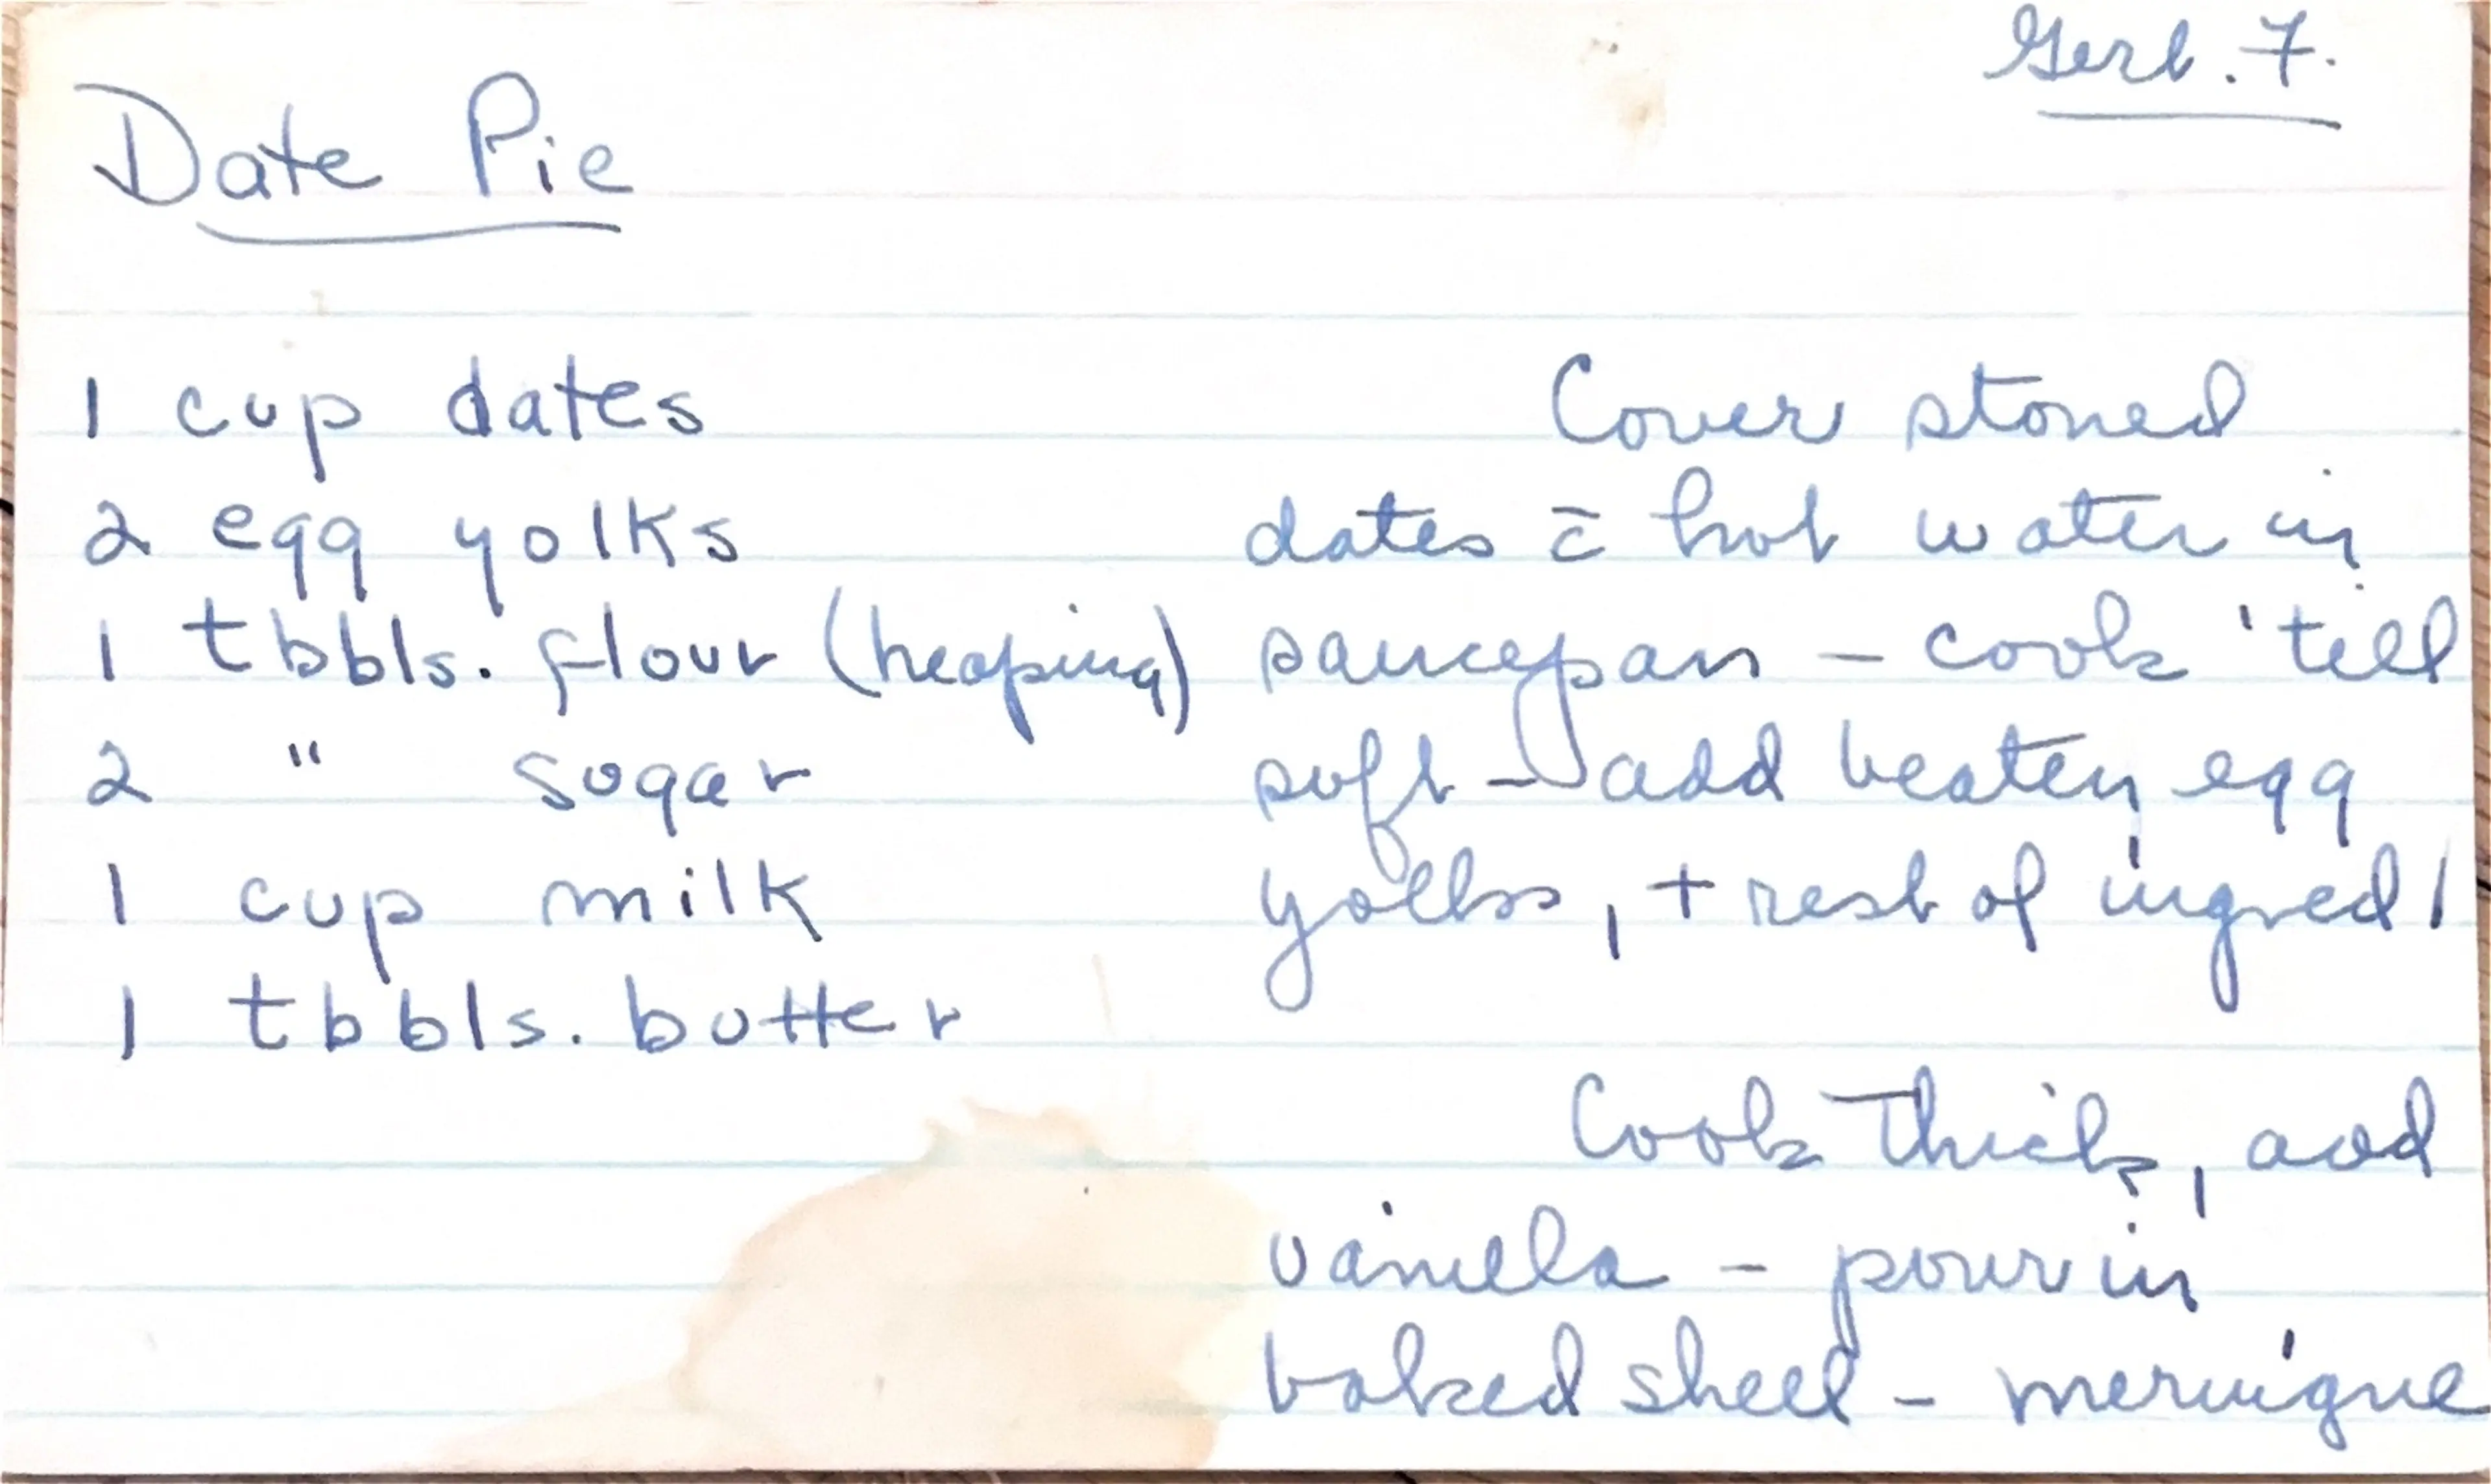 Gert. F.
Date Pie
1 cup dates
2 egg yolks
1 tbbls. flour (heaping)
2 " sugar
1 cup milk
1 tbbls. butter
Cover stoned
dates c̄ hot water in
saucepan – cook 'till
soft – add beaten egg
yolks, + rest of ingred /
Cook thick, add
vanilla – pour in
baked shell – meringue